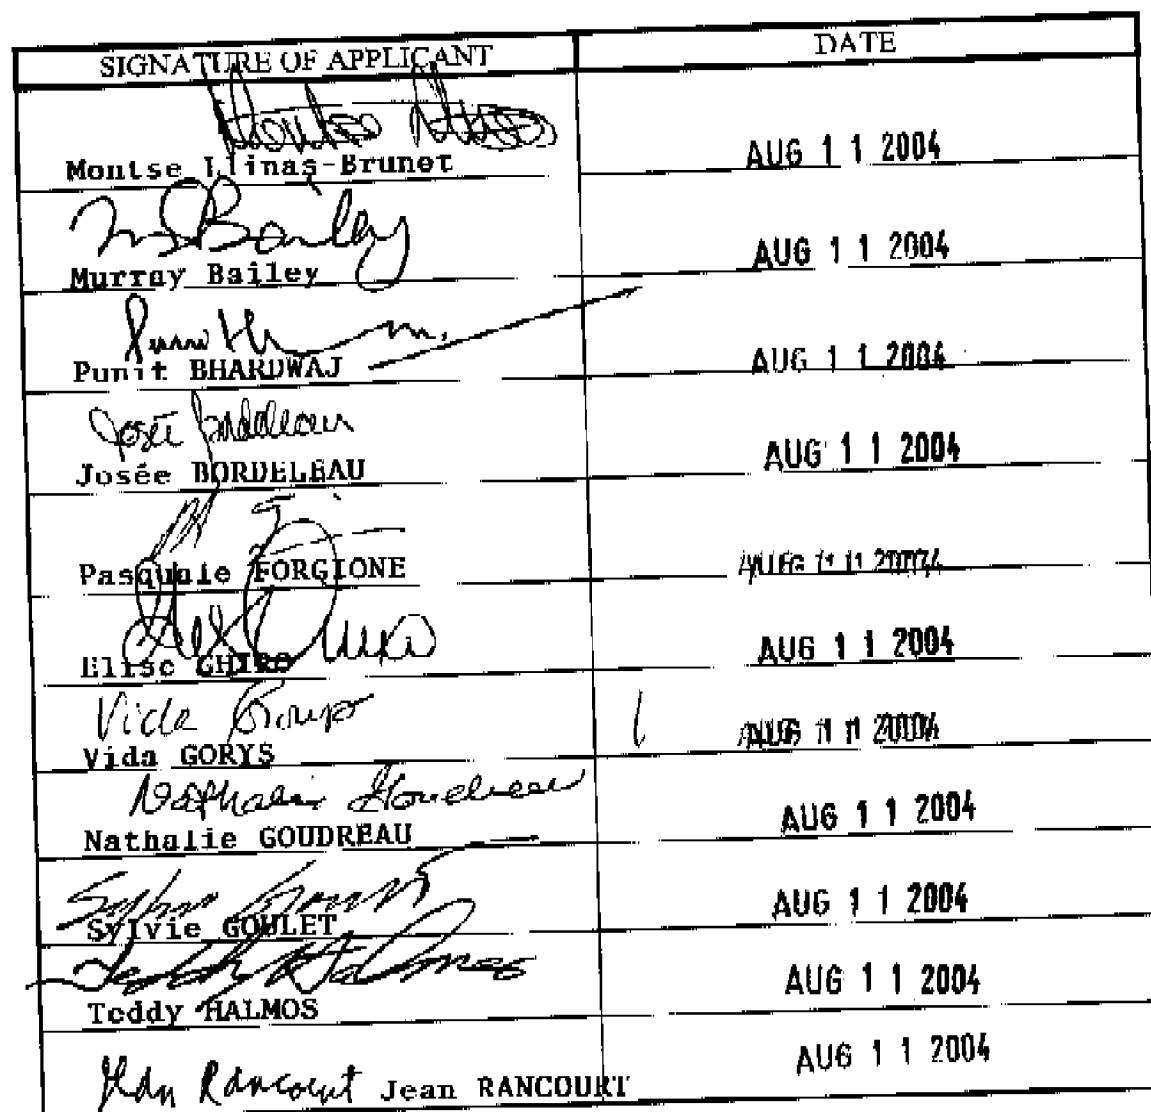 SIGNATURE OF APPLICANT DATE
Montse Llinas-Brunet AUG 1 1 2004
M Bailey
Murray Bailey AUG 1 1 2004
Punit BHARDWAJ AUG 1 1 2004
Josée Bordeleau
Josée BORDELEAU AUG 1 1 2004
Pasquale FORGIONE AUG 1 1 2004
Elise GHIRO AUG 1 1 2004
Vida Gorys
Vida GORYS AUG 1 1 2004
Nathalie Goudreau
Nathalie GOUDREAU AUG 1 1 2004
Sylvie GOULET AUG 1 1 2004
Teddy Halmos
Teddy HALMOS AUG 1 1 2004
Jean Rancourt Jean RANCOURT AUG 1 1 2004